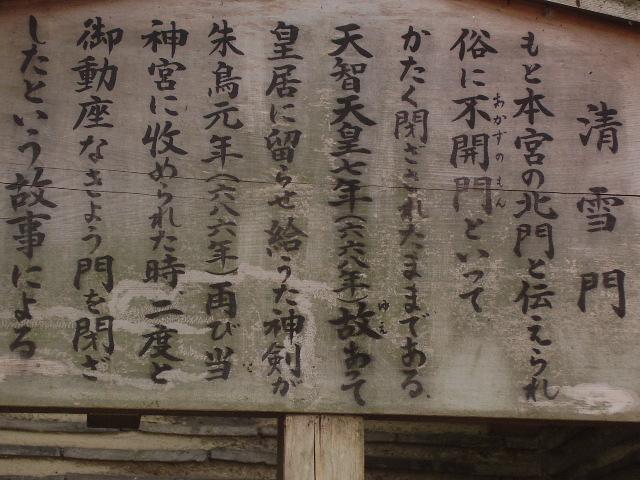 清雪門
もと本宮の北門と伝えられ
俗に不開門といって
あかずのもん
かたく閉ざされたままである
天智天皇七年(六六八年)故あって
ゆえ
皇居に留らせ給うた神剣が
朱鳥元年(六八六年)再び当
神宮に收められた時二度と
御動座なきよう門を閉ざ
したという故事による